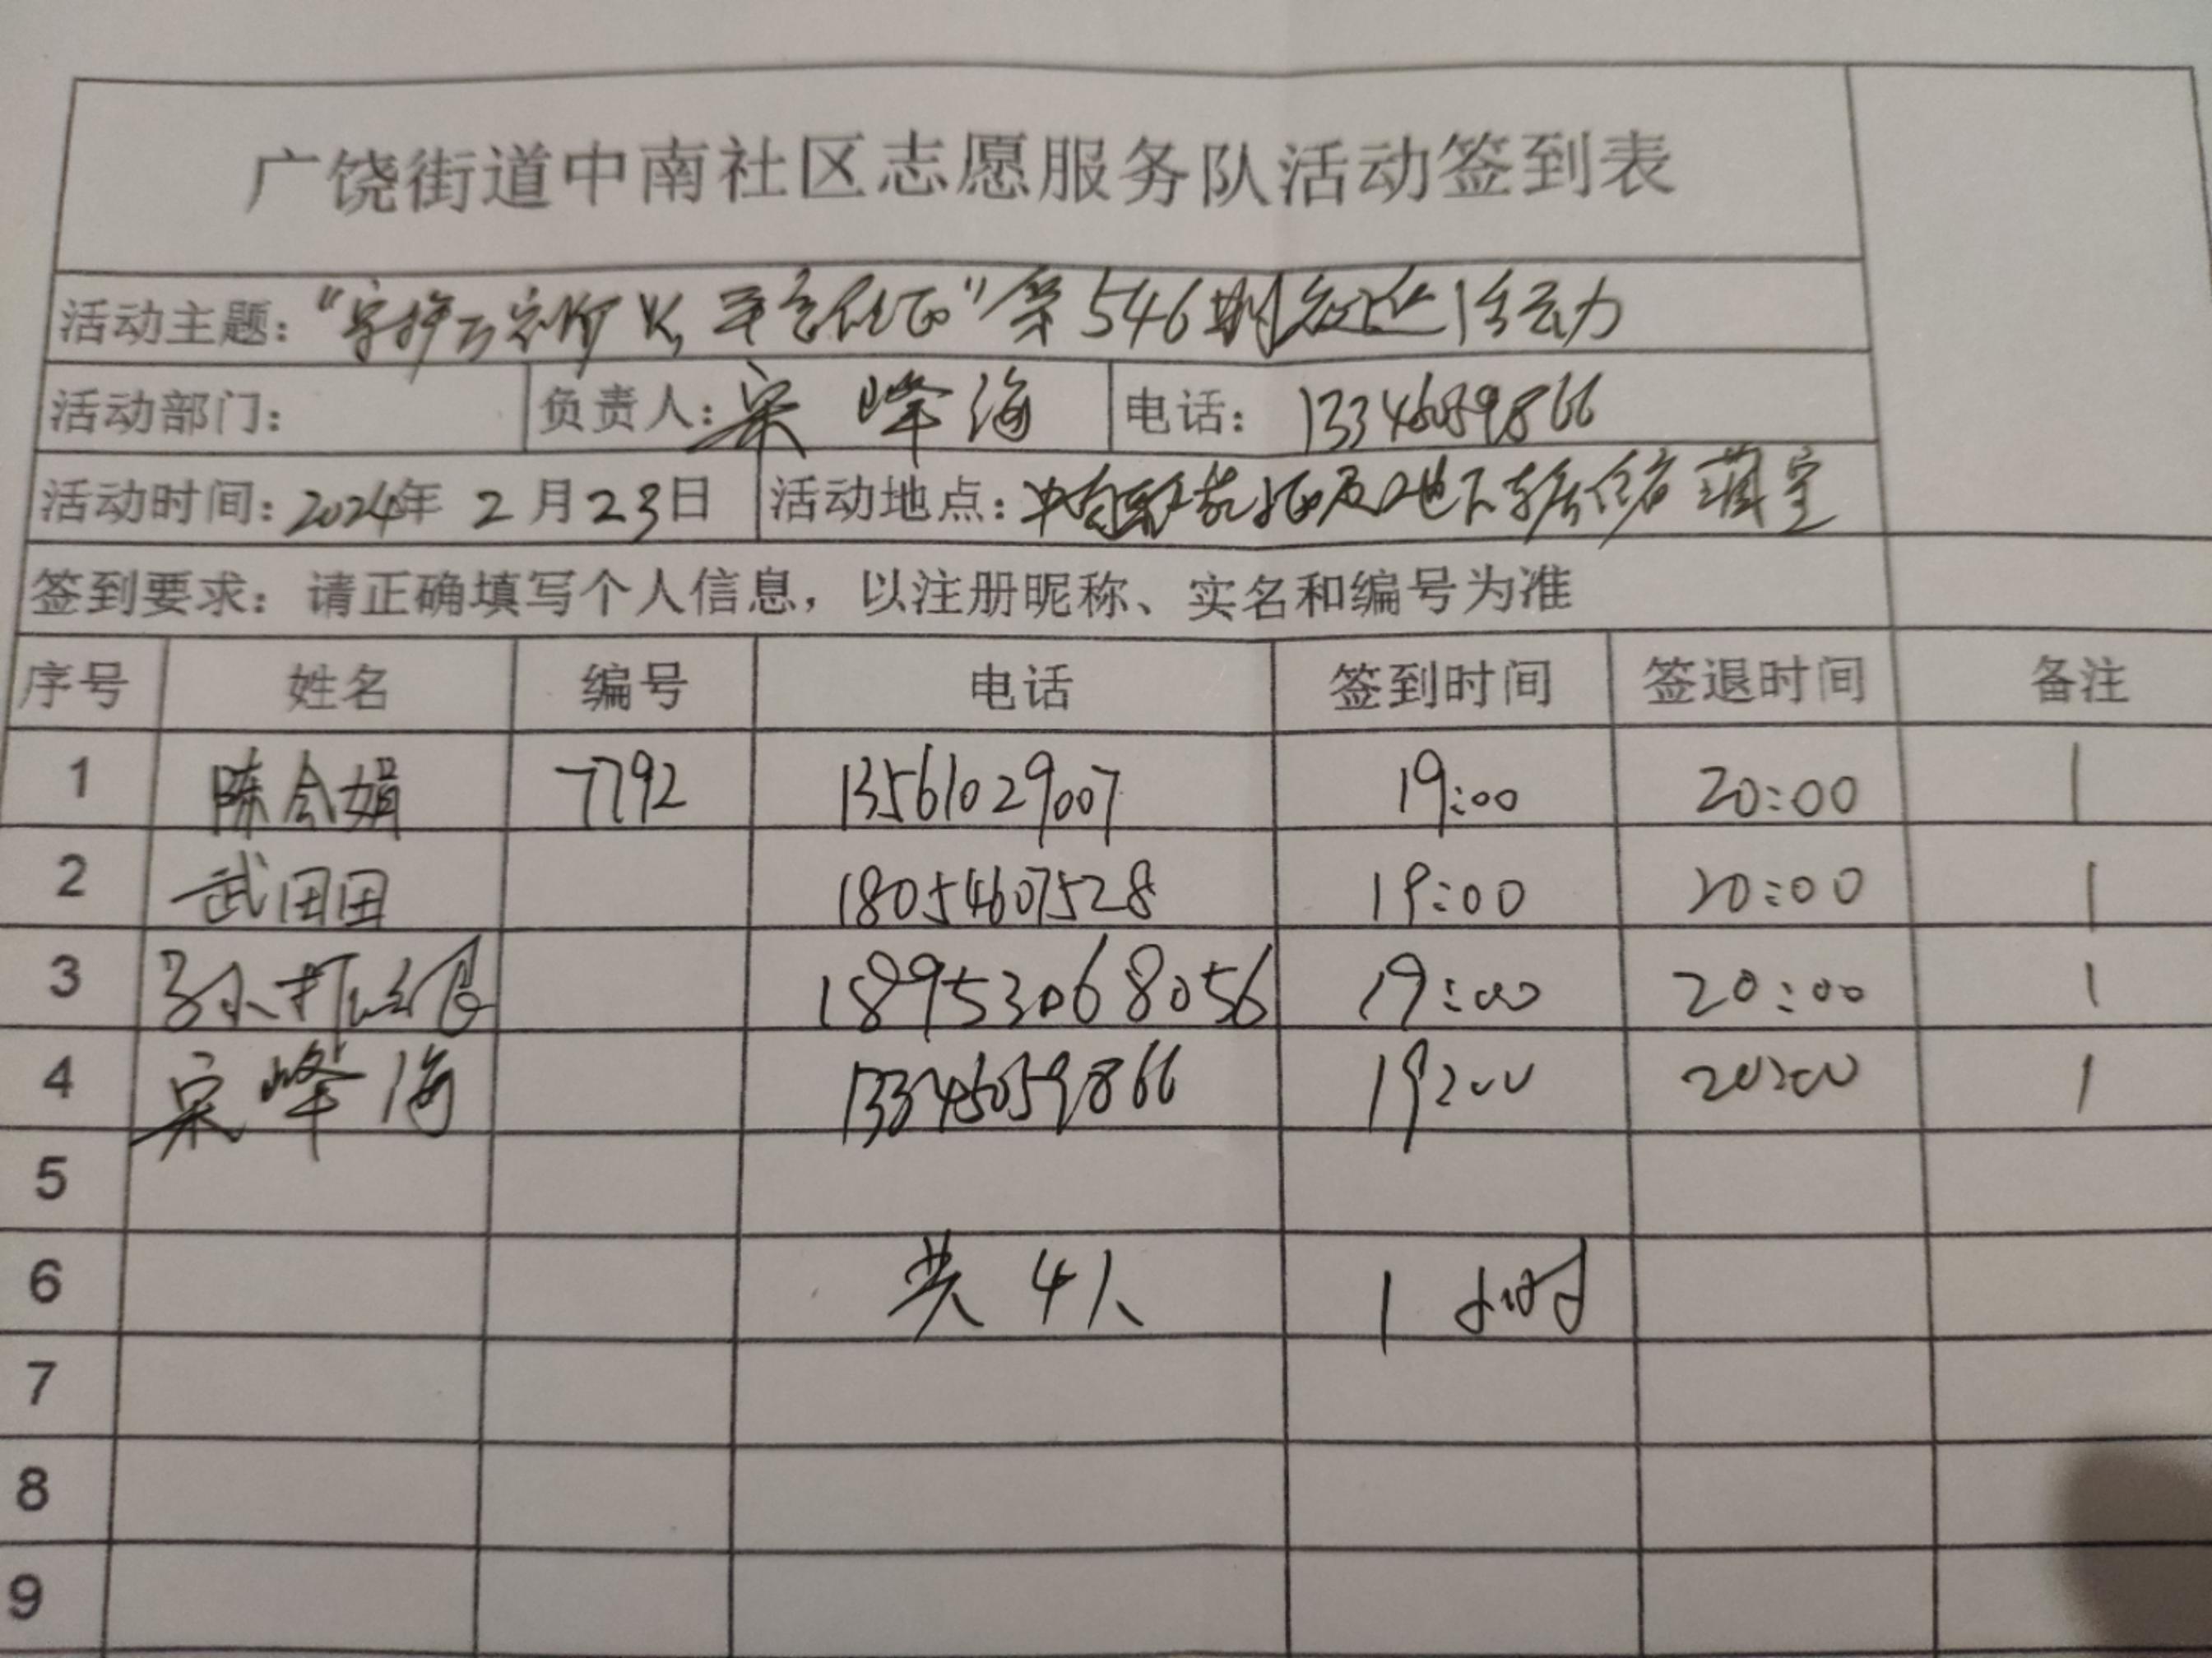 广饶街道中南社区志愿服务队活动签到表
活动主题：“守护 ”第546期 活动
活动部门： 负责人：宋峰海 电话：13346059866
活动时间：2024年2月23日 活动地点：中南 地下
签到要求：请正确填写个人信息，以注册昵称、实名和编号为准
序号 姓名 编号 电话 签到时间 签退时间 备注
1 陈令娟 7792 13561029007 19:00 20:00 1
2 武田田 18054607528 19:00 20:00 1
3 孙 18953068056 19:00 20:00 1
4 宋峰海 13346059866 19:00 20:00 1
5
6 共4人 1小时
7
8
9